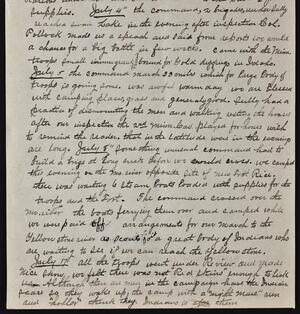 supplies. July 4th the command, 2 brigades
reached Swan Lake in the evening after inspection Col.
Pollock made us a speach and said from reports we would
a chance for a big battle in few weeks. came with the Minn
troops small immigrants bound for Gold diggings in Idaho.
July 5 the command march 23 miles which for large body of
troops is going some. was awful warm day we are blessed
with camping places grass and general good. Sully had a
practice of dismounting the men and
after our inspection the
to remind the reader, that in the latitudes was in the evening
are long. July 8 something unusual command had to
build a brige 60 long built before we could cross. we camped
this evening on the Mo river opposite Site of new Fort Rice.
there was waiting 6 Steam boats loaded with supplies for the
troops and the Fort. The command crossed over the
Mo river the boats ferrying them over and camped while
we were paid off arrangements for our march to the
Yellowstone also as scouts a great body of Indians who
are waiting to see if we can reach the Yellowstone.
July 17 all the troops went under Review and made
Nice Show, we felt there was not Red Skins enough to lick
us. Although there
years so they wake up the camp with a night mare
and "holler" think they Indians is after them